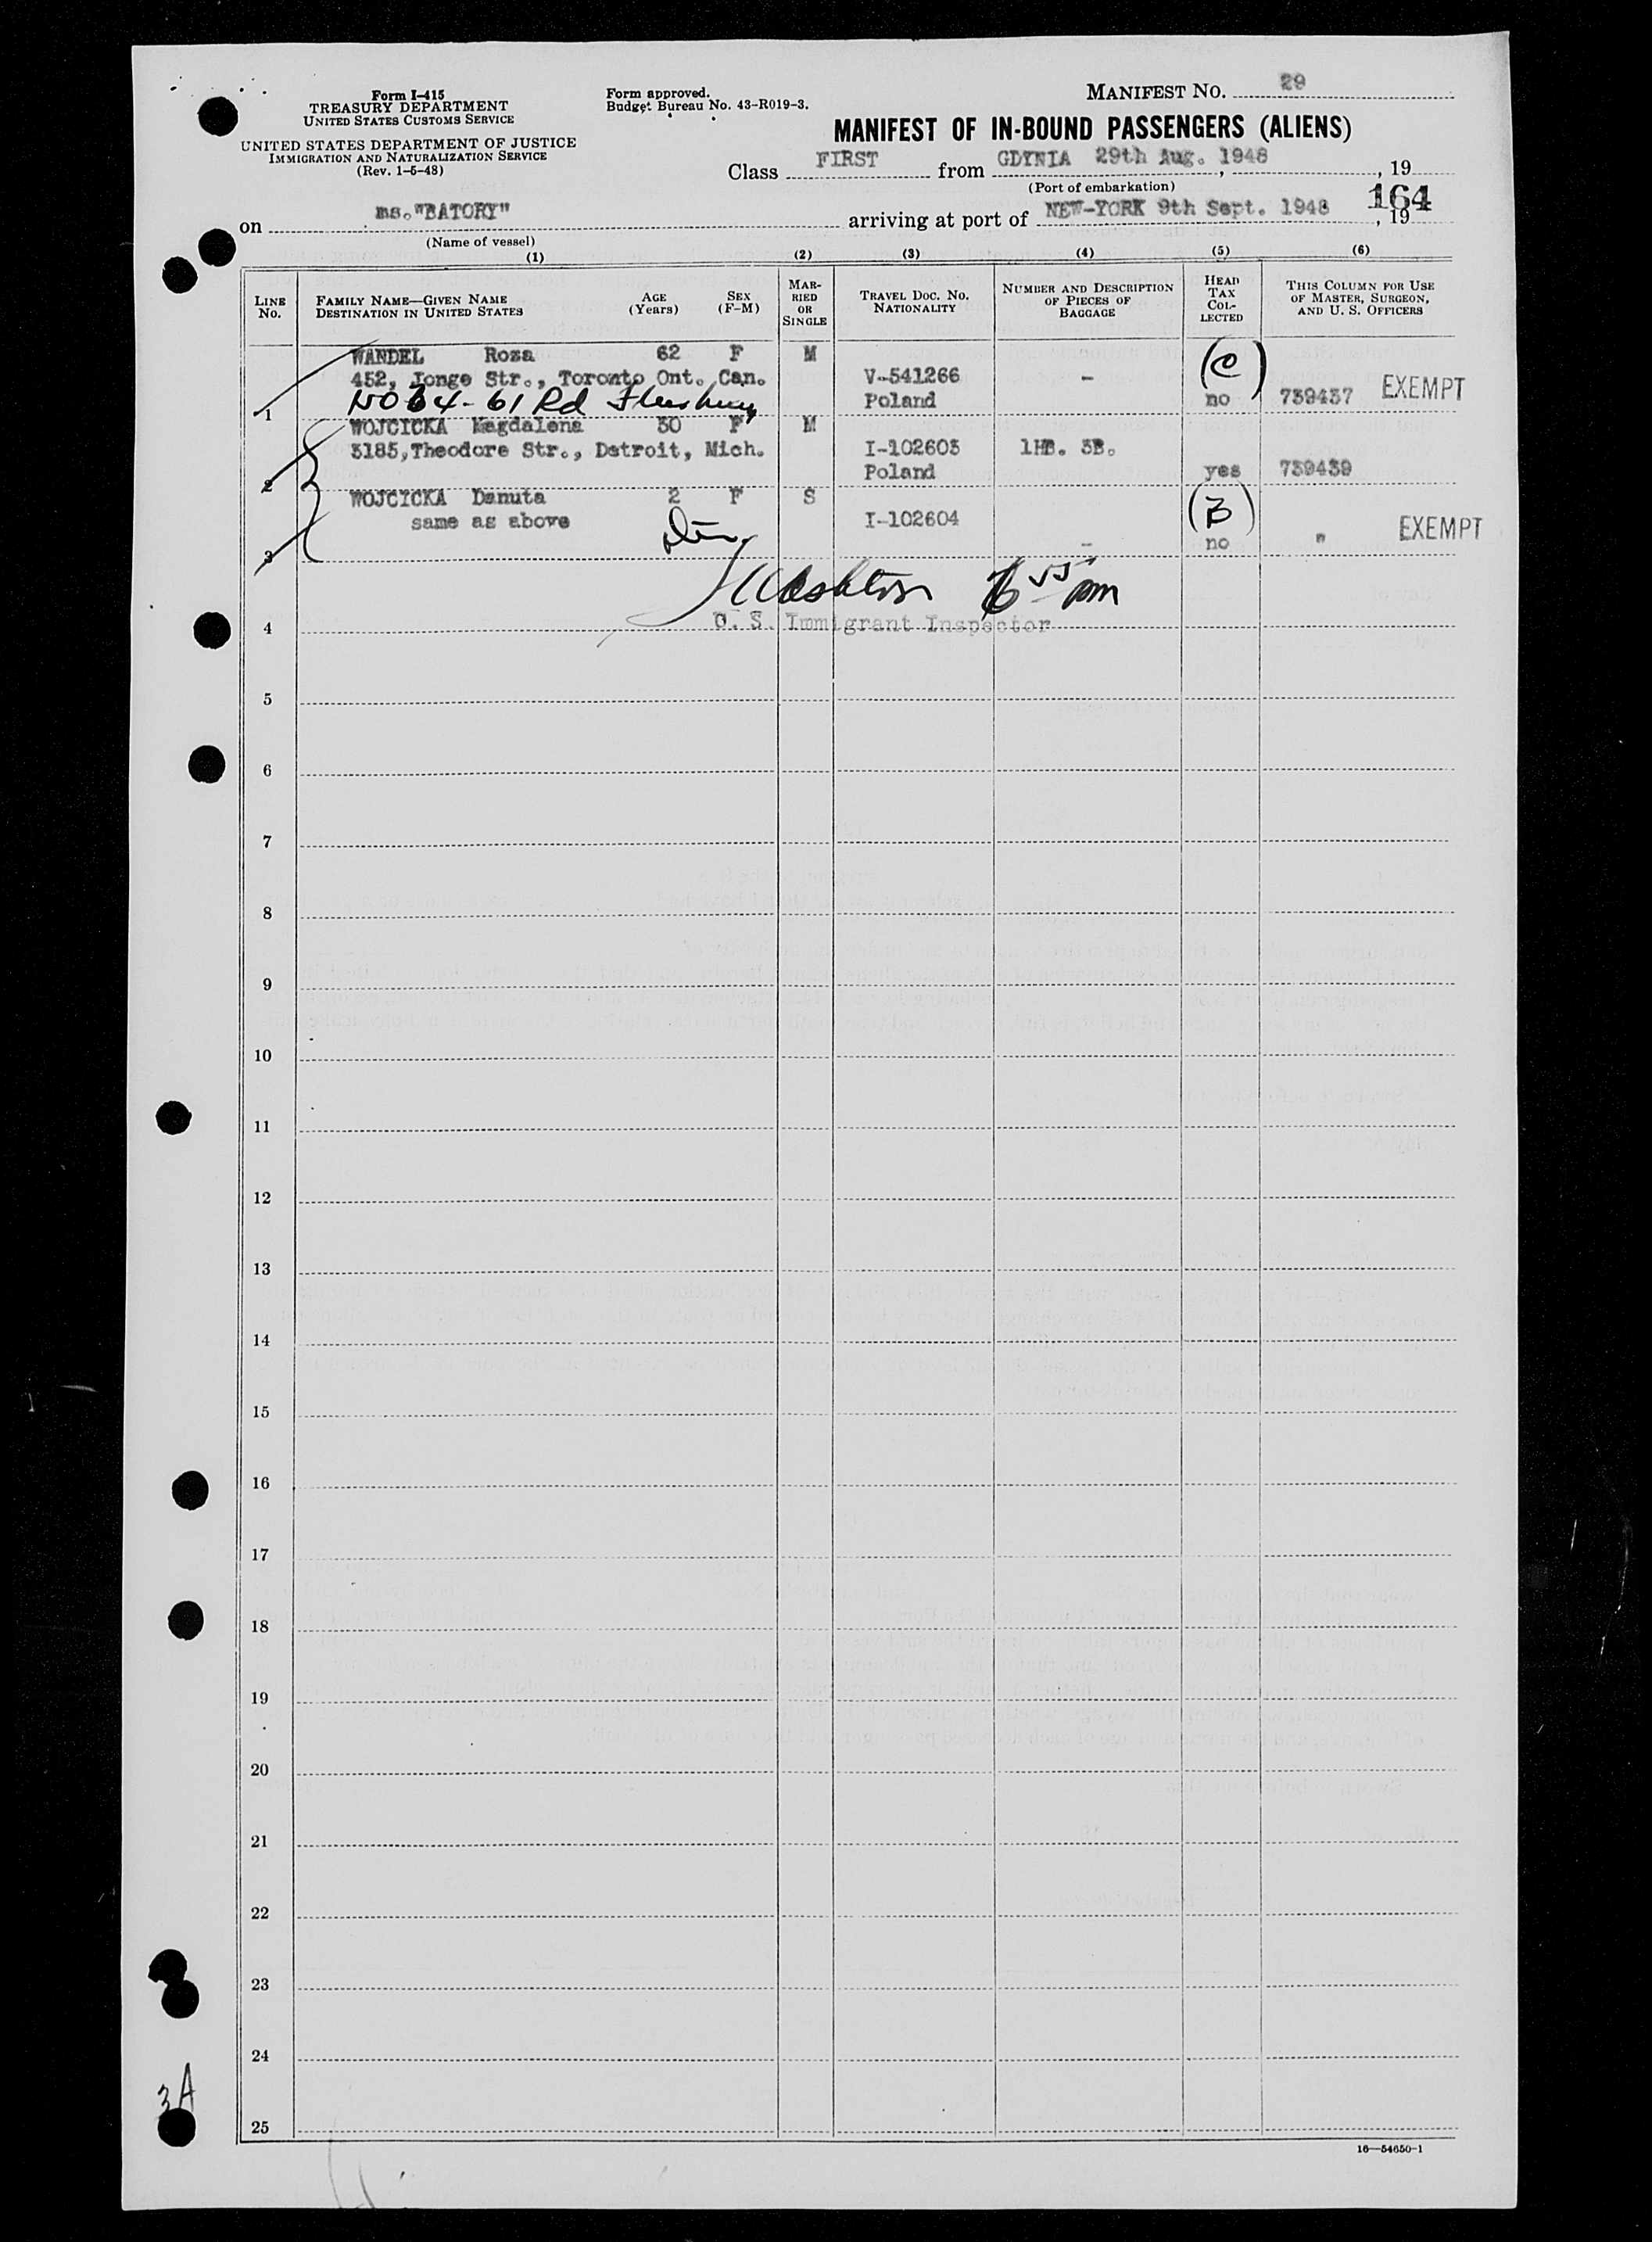 Form I-415
TREASURY DEPARTMENT
UNITED STATES CUSTOMS SERVICE
UNITED STATES DEPARTMENT OF JUSTICE
IMMIGRATION AND NATURALIZATION SERVICE
(Rev. 1-5-48)
Form approved.
Budget Bureau No. 43-R019-3.
MANIFEST NO. 29
MANIFEST OF IN-BOUND PASSENGERS (ALIENS)
Class FIRST from GDYNIA 29th Aug. 1948, 19
(Port of embarkation)
164
on ms. "BATORY" arriving at port of NEW-YORK 9th Sept. 1948, 19
(Name of vessel)
(1) (2) (3) (4) (5) (6)
LINE No. FAMILY NAME—GIVEN NAME DESTINATION IN UNITED STATES AGE (Years) SEX (F-M) MARRIED OR SINGLE TRAVEL DOC. NO. NATIONALITY NUMBER AND DESCRIPTION OF PIECES OF BAGGAGE HEAD TAX COLLECTED THIS COLUMN FOR USE OF MASTER, SURGEON, AND U. S. OFFICERS
WANDEL Roza 62 F M (C)
452, Jonge Str., Toronto Ont. Can. V-541266 -
1 64-61 Rd Poland no 739437 EXEMPT
WOJCICKA Magdalena 30 F M
3185, Theodore Str., Detroit, Mich. I-102603 1HB. 3B.
2 Poland yes 739439
WOJCICKA Danuta 2 F S (B)
same as above I-102604 EXEMPT
3 - no "
55 pm
4 U. S. Immigrant Inspector
5
6
7
8
9
10
11
12
13
14
15
16
17
18
19
20
21
22
23
24
25
3A
16—54650-1